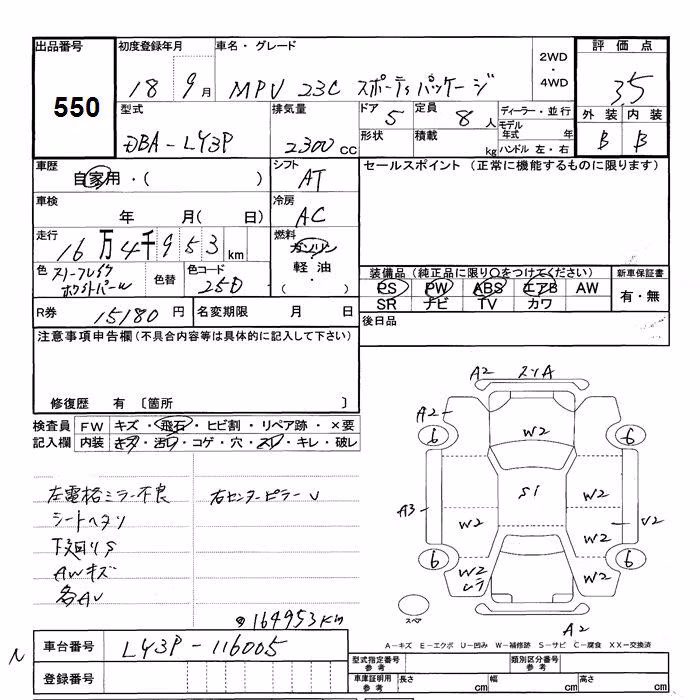 出品番号 初度登録年月 車名・グレード 2WD・4WD 評価点
550
18 9月 MPV 23C スポーティパッケージ 3.5
型式 排気量 ドア 定員 ディーラー・並行 外装 内装
DBA-LY3P 2300cc 5 8人 モデル年式 年 B B
形状 積載 kg ハンドル 左・右
車歴 シフト セールスポイント (正常に機能するものに限ります)
自家用・( ) AT
車検 冷房
年 月( 日) AC
走行 燃料
16万4千953km ガソリン・軽油・( )
色 色替 色コード 装備品 (純正品に限り○をつけてください) 新車保証書
25D PS PW ABS エアB AW 有・無
SR ナビ TV カワ
R券 15180円 名変期限 月 日 後日品
注意事項申告欄(不具合内容等は具体的に記入して下さい)
修復歴 有 〔箇所 〕
検査員記入欄 FW キズ・飛石・ヒビ割・リペア跡・×要
内装 キズ・汚レ・コゲ・穴・スレ・キレ・破レ
左電格ミラー不良 右センターピラーU
シートヘタリ
下廻りS
AWキズ
各AU
164953km
A2 スリA
A2
6 W2 6
S1 W2
A3 W2 W2 U2
6 W2 ムラ W2 6
スペア
A2
A-キズ E-エクボ U-凹み W-補修跡 S-サビ C-腐食 XX-交換済
N 車台番号 LY3P-116005
登録番号
型式指定番号 参考 類別区分番号 参考
車庫証明用 参考 長さ cm 幅 cm 高さ cm